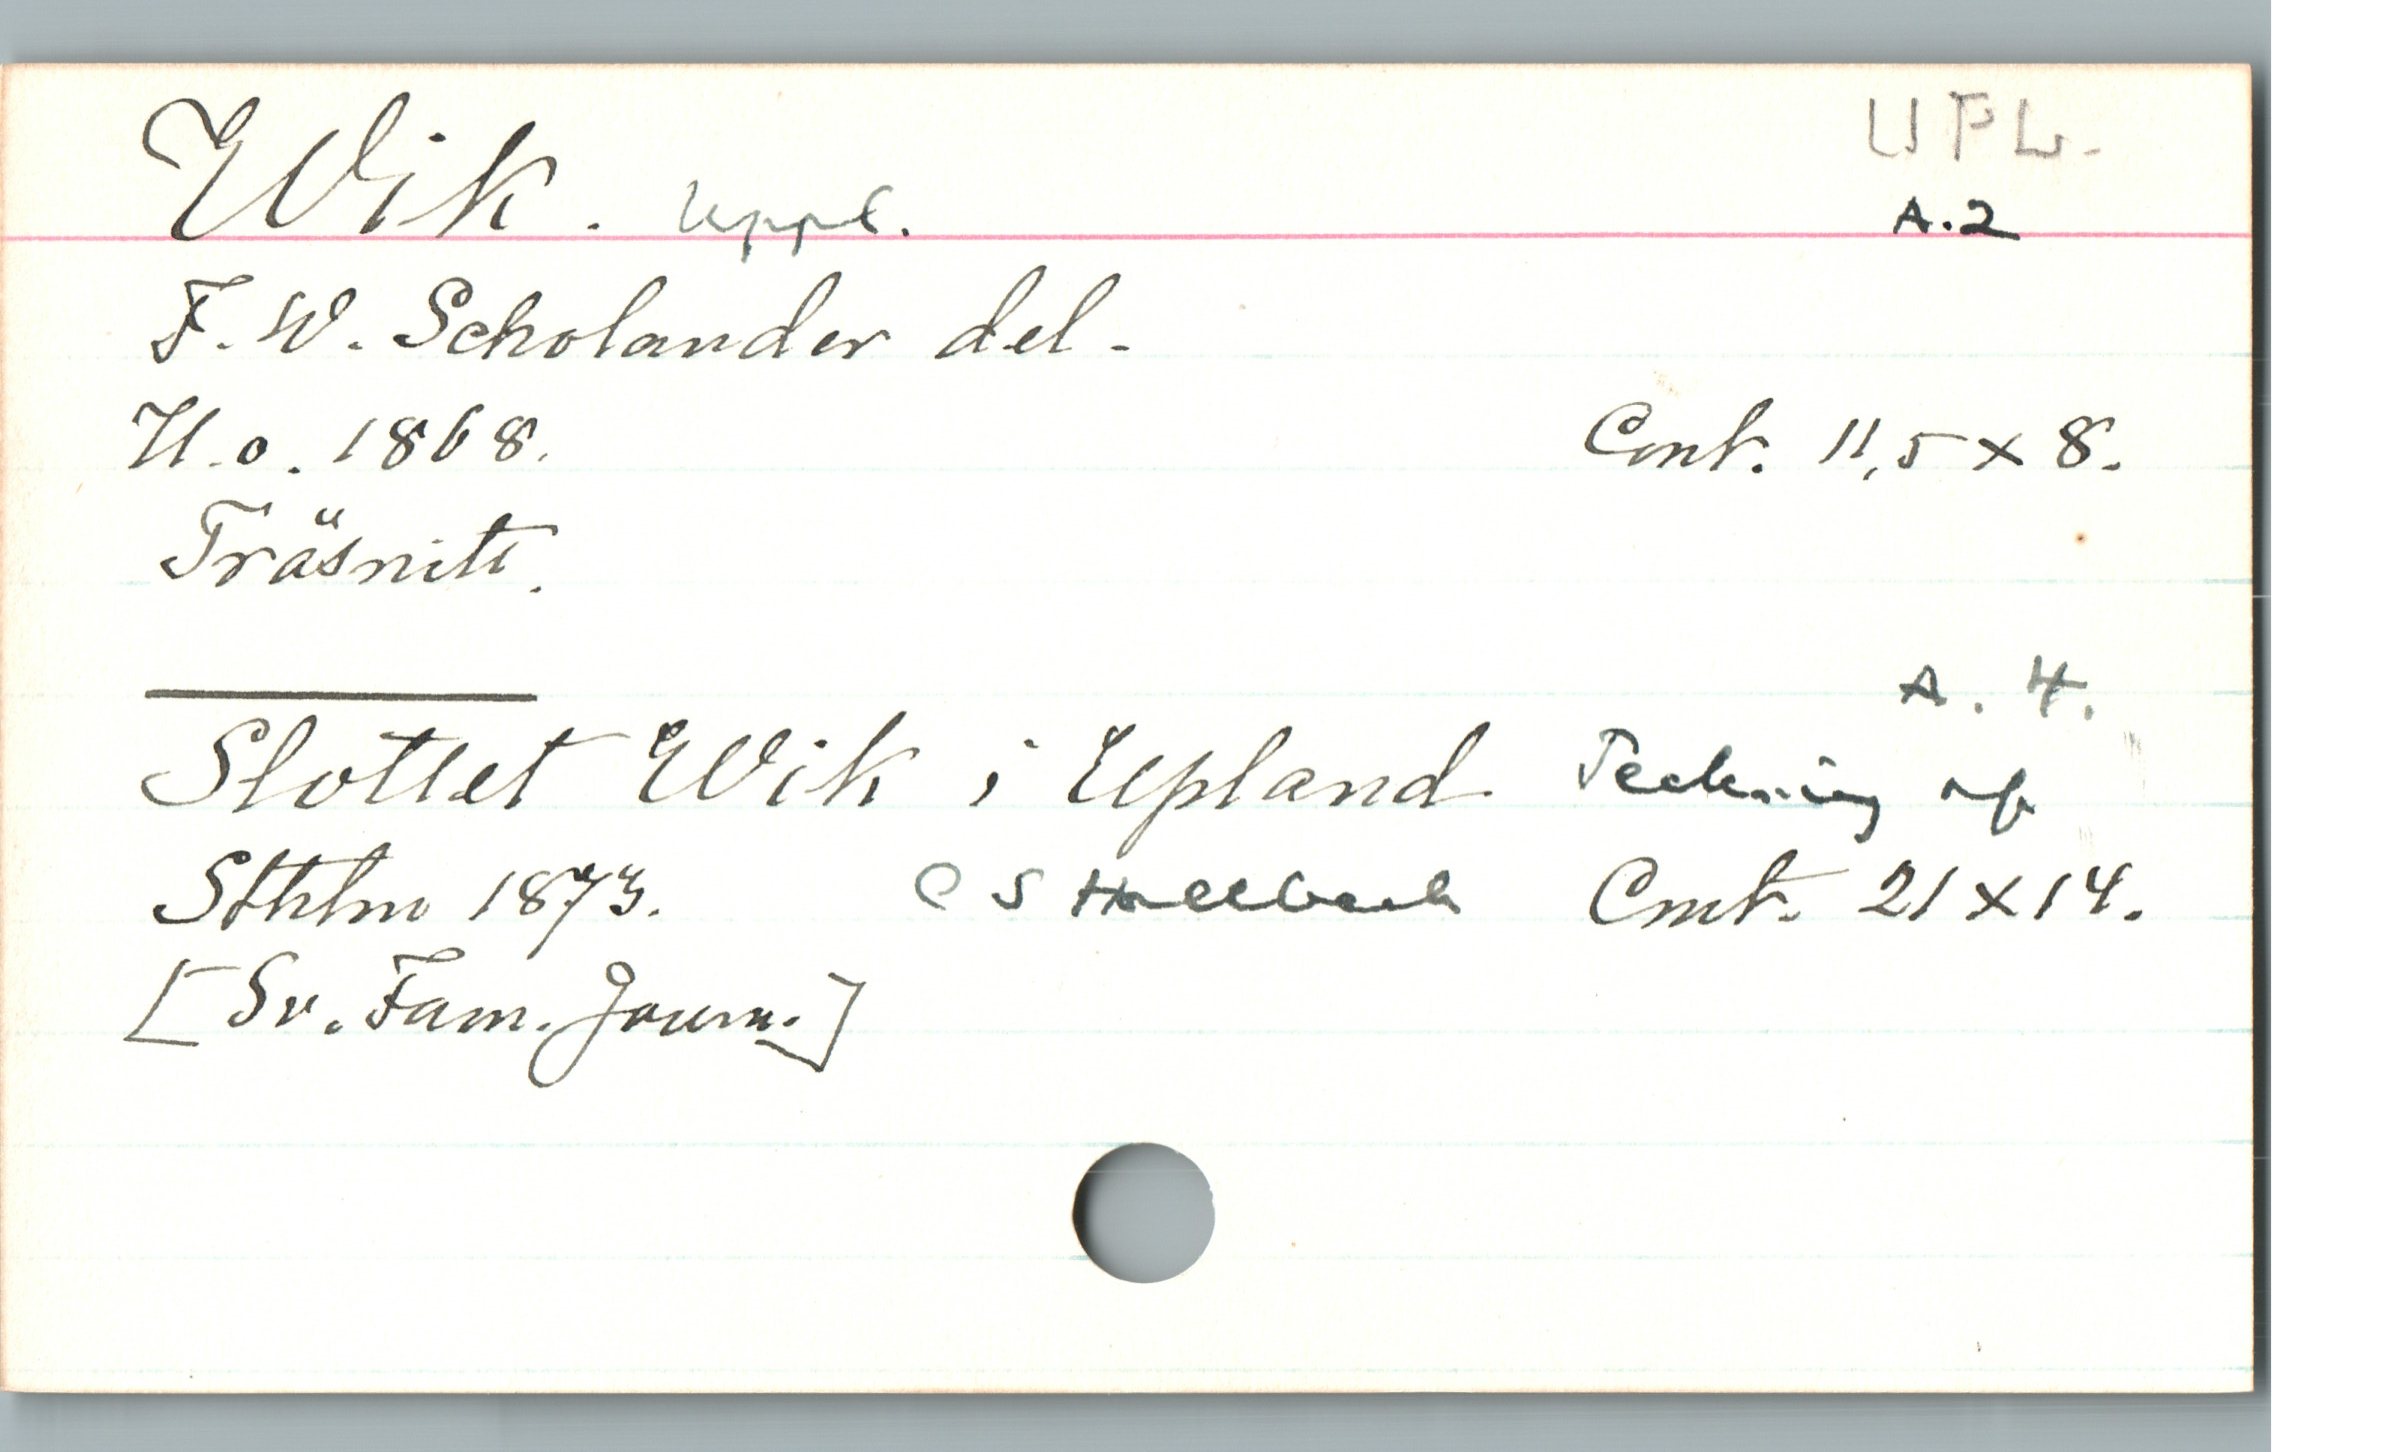 Wik. Uppl. UPL.
A.2
F. W. Scholander del.
U.o. 1868. Cmt. 11,5 x 8.
Träsnitt.
A. 4.
Slottet Wik i Upland. Teckning af
Sthlm 1873. C S Hallbeck Cmt. 21 x 14.
[Sv. Fam. Journ.]